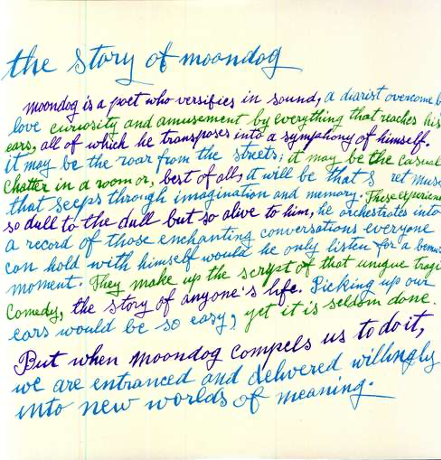 the story of moondog
moondog is a poet who versifies in sound, a diarist overcome b
love curiosity and amusement by everything that reaches his
ears, all of which he transposes into a symphony of himself.
it may be the roar from the streets; it may be the casual
chatter in a room or, best of all, it will be that s ret music
that seeps through imagination and memory. These experiences
so dull to the dull but so alive to him, he orchestrates into
a record of those enchanting conversations everyone
can hold with himself would he only listen for a
moment. They make up the script of that unique tragi
comedy, the story of anyone's life. Picking up our
ears would be so easy, yet it is seldom done.
But when moondog compels us to do it,
we are entranced and delivered willingly
into new worlds of meaning.